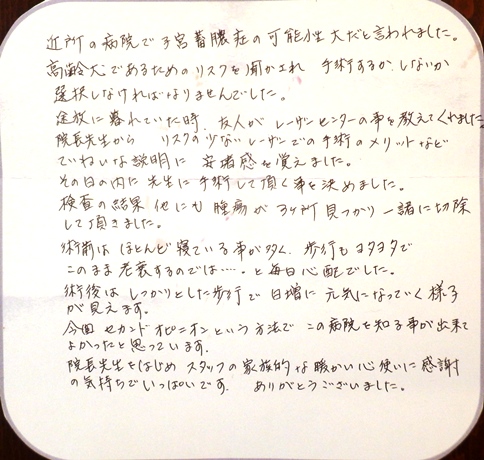 近所の病院で子宮蓄膿症の可能性大だと言われました。
高齢犬であるためのリスクを聞かされ 手術するか、しないか
選択しなければなりませんでした。
途方に暮れていた時、友人がレーザーセンターの事を教えてくれました。
院長先生から リスクの少ないレーザーでの手術のメリットなど
ていねいな説明に 安堵感を覚えました。
その日の内に先生に手術して頂く事を決めました。
検査の結果 他にも腫瘍が3ヶ所見つかり一諸に切除
して頂きました。
術前はほとんど寝ている事が多く、歩行もヨタヨタで
このまま老衰するのでは‥‥。と毎日心配でした。
術後はしっかりとした歩行で日増に元気になっていく様子
が見えます。
今回セカンドオピニオンという方法でこの病院を知る事が出来て
よかったと思っています。
院長先生をはじめスタッフの家族的な暖かい心使いに感謝
の気持ちでいっぱいです。 ありがとうございました。